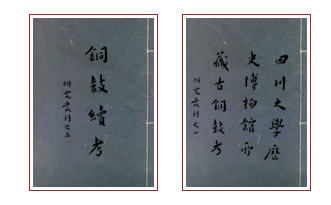 銅鼓續考
研究叢刊之五
四川大學歷
史博物館所
藏古銅鼓考
研究叢刊之一